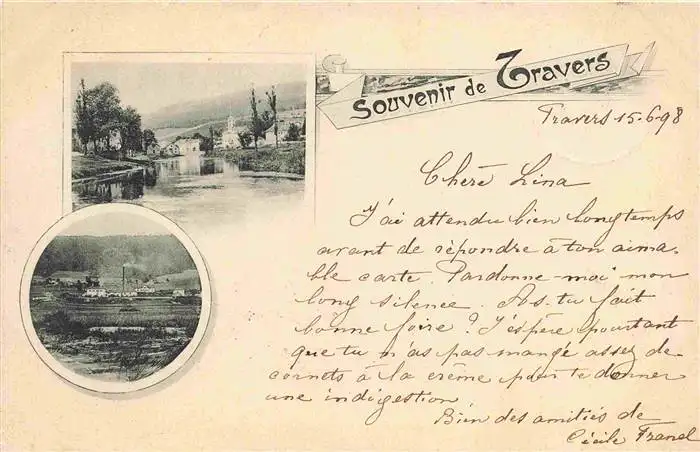 Souvenir de Travers
Travers 15-6-98
Chère Lina
J'ai attendu bien longtemps
avant de répondre à ton aima-
ble carte. Pardonne-moi mon
long silence. As-tu fait
bonne foire? J'éspère pourtant
que tu n'as pas mangé assez de
cornets à la crème pour te donner
une indigestion
Bien des amitiés de
Cécile